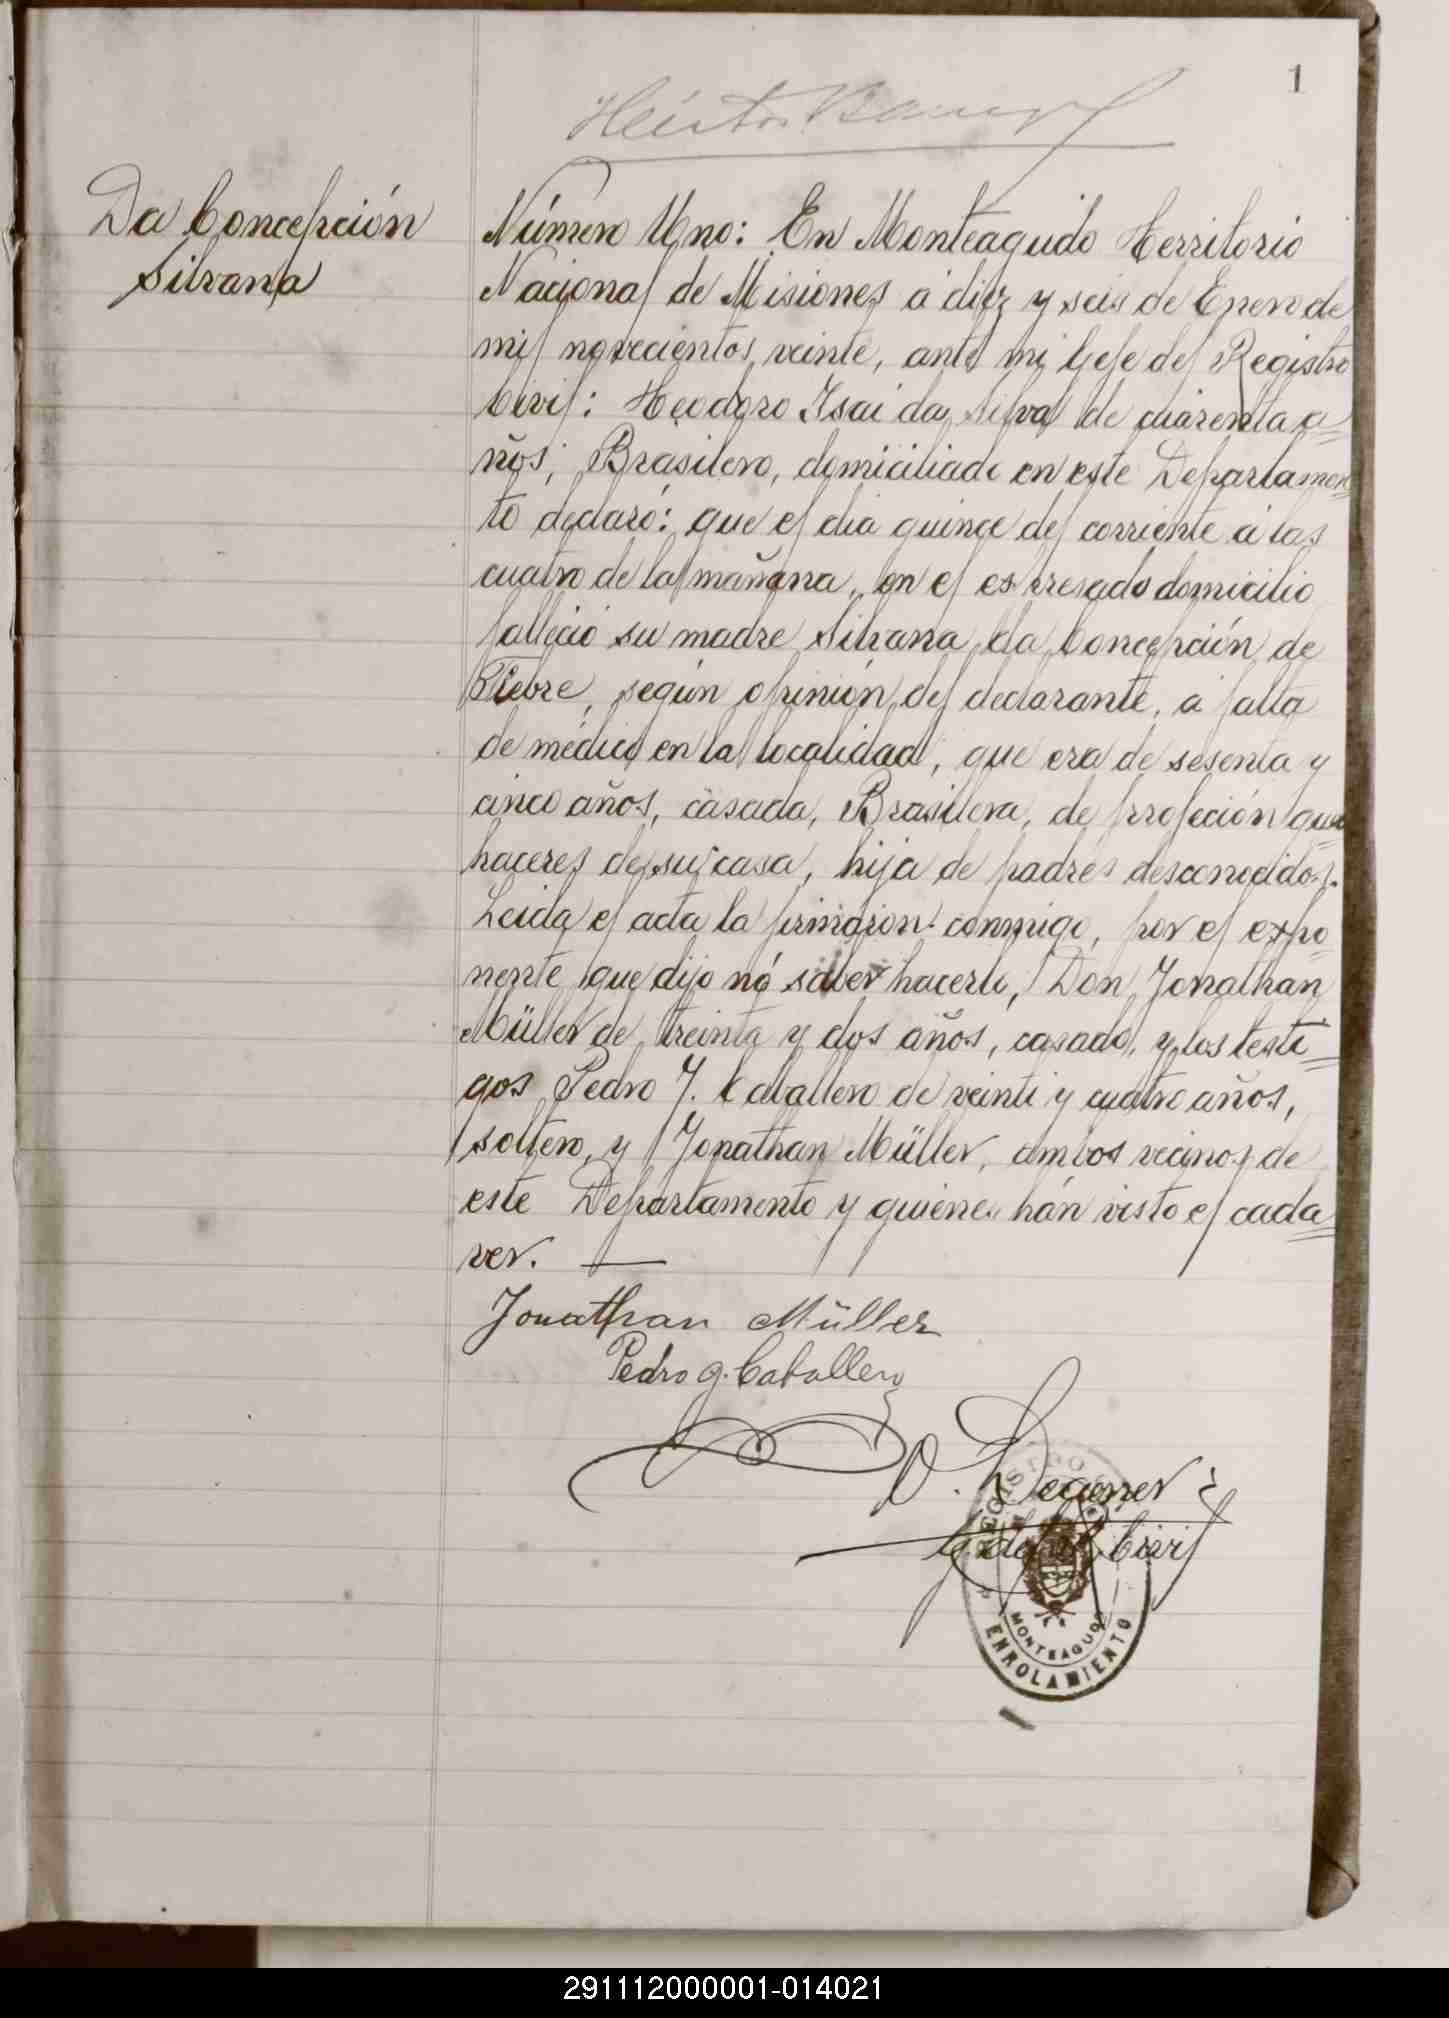 1
Da Concepción
Silvana
Número Uno: En Monteagudo Territorio
Nacional de Misiones á diez y seis de Enero de
mil novecientos veinte, ante mi Gefe del Registro
Civil: Teodoro Isai da Silva de cuarenta a=
ños, Brasilero, domiciliado en este Departamen=
to declaró: que el dia quince del corriente á las
cuatro de la mañana, en el espresado domicilio
falleció su madre Silvana da Concepción de
Fiebre, según opinión del declarante, á falta
de médico en la localidad, que era de sesenta y
cinco años, casada, Brasilera, de profeción que=
haceres de su casa, hija de padres desconocidos.
Leida el acta la firmaron conmigo, por el expo=
nente que dijo nó saber hacerlo, Don Jonathan
Müller de treinta y dos años, casado, y los testi=
gos Pedro J. Caballero de veinti y cuatro años,
soltero, y Jonathan Müller, ambos vecinos de
este Departamento y quienes hán visto el cada=
ver. —
Jonathan Müller
Pedro J. Caballero
G. del R. Civil
REGISTRO
MONTEAGUDO
ENROLAMIENTO
291112000001-014021